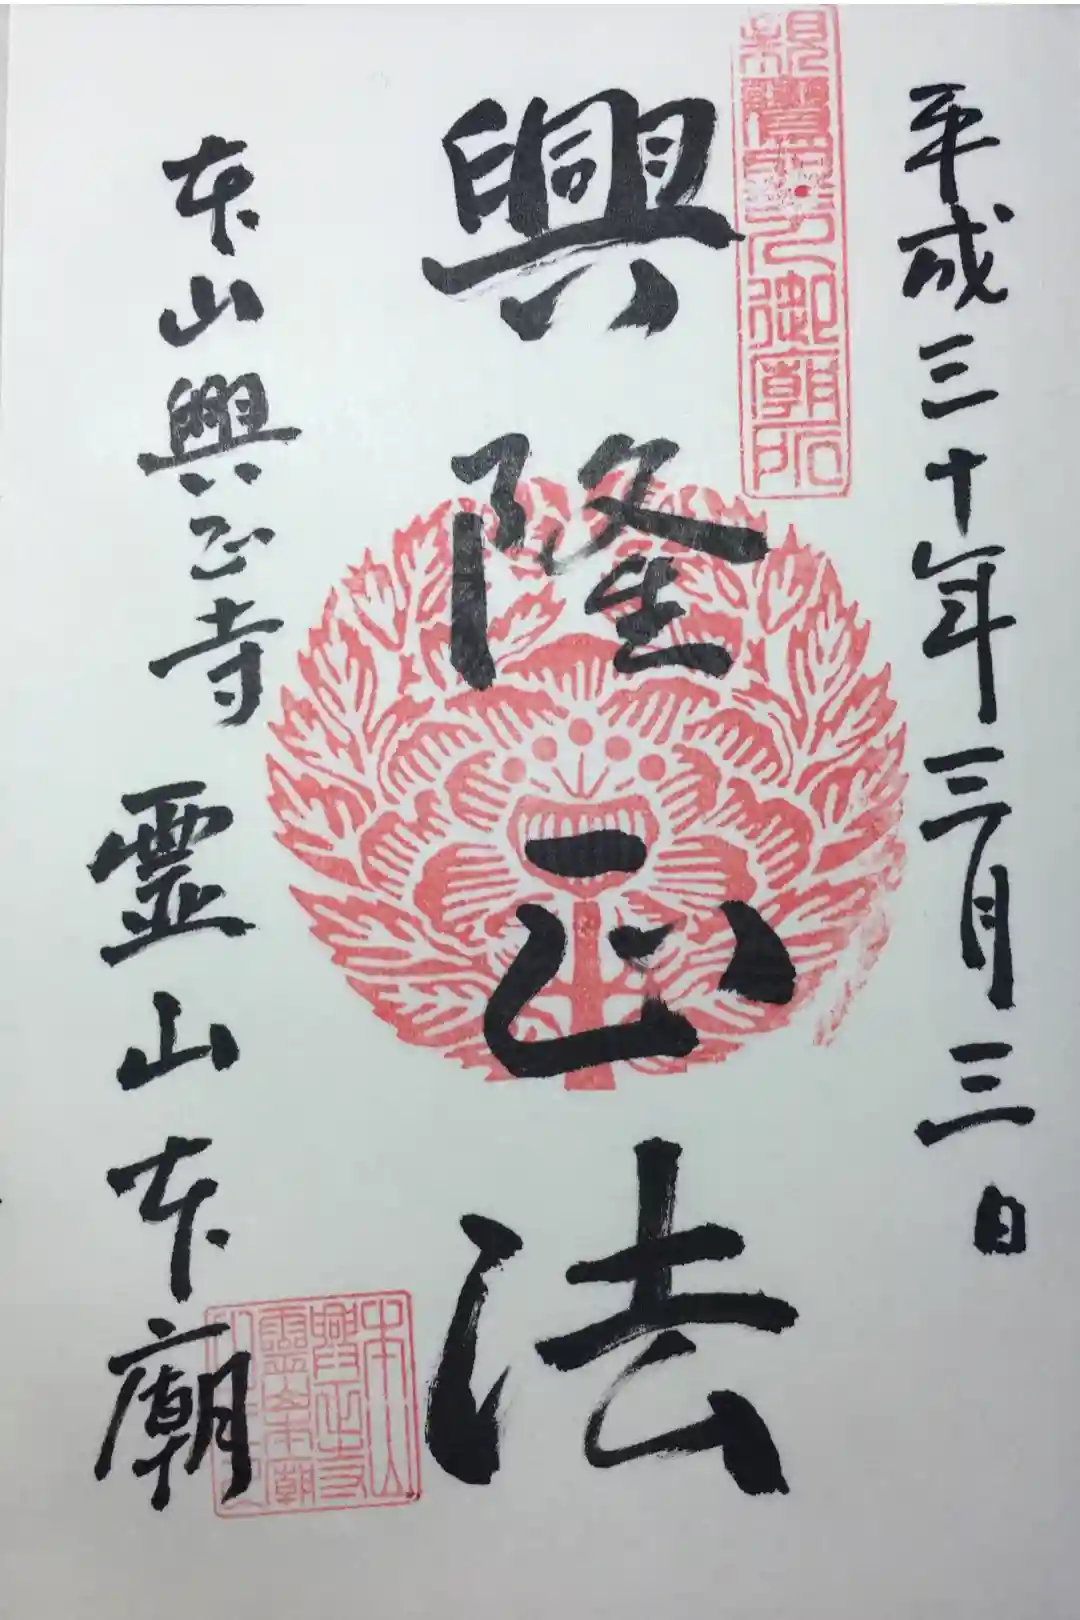 平成三十年三月三日
親鸞聖人御廟所
興隆正法
本山興正寺 霊山本廟
本山
興正寺
霊山本廟